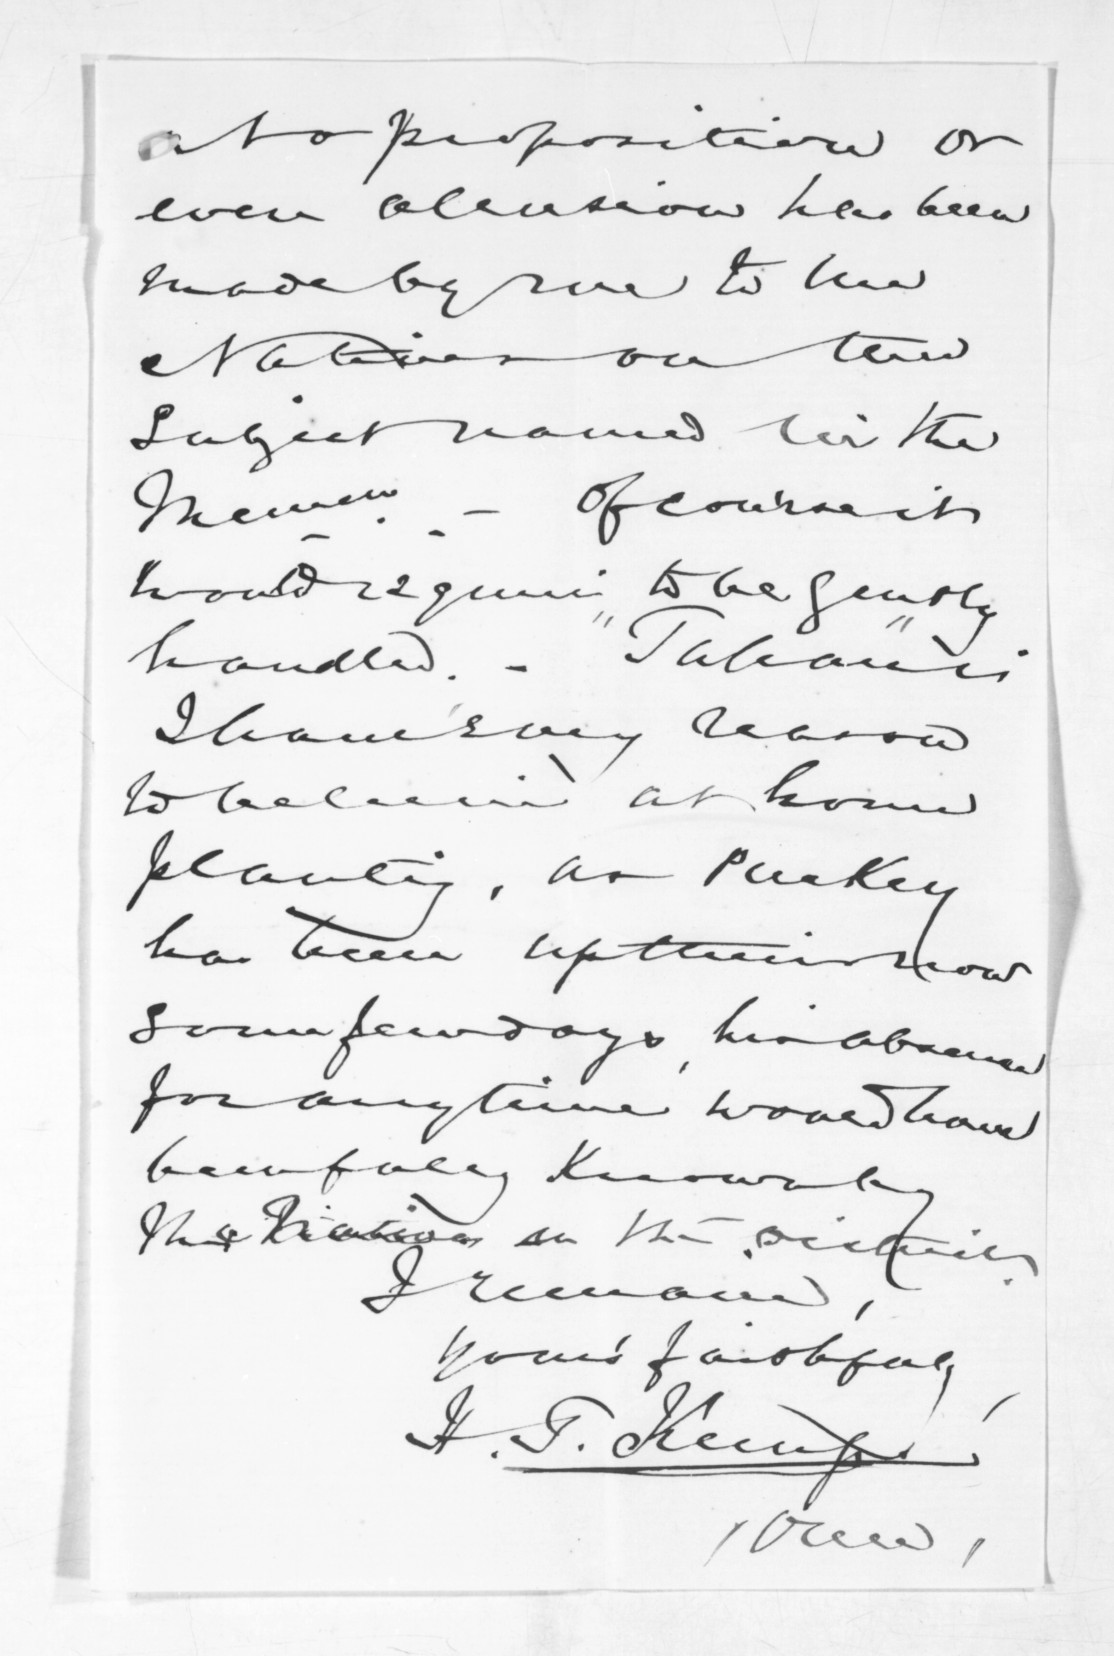 No proposition or
even allusion has been
made by me to the
Natives on the
subject named in the
Memo. - Of course it
would require to be gently
handled. - "Tahana" is
I have every reason
to believe at home
planting, as Puckey
has been up there now
some few days, his absence
for any time would have
been fully known by
the Natives in the District.
I remain,
Yours faithfully,
H. T. Kemp
(Over)